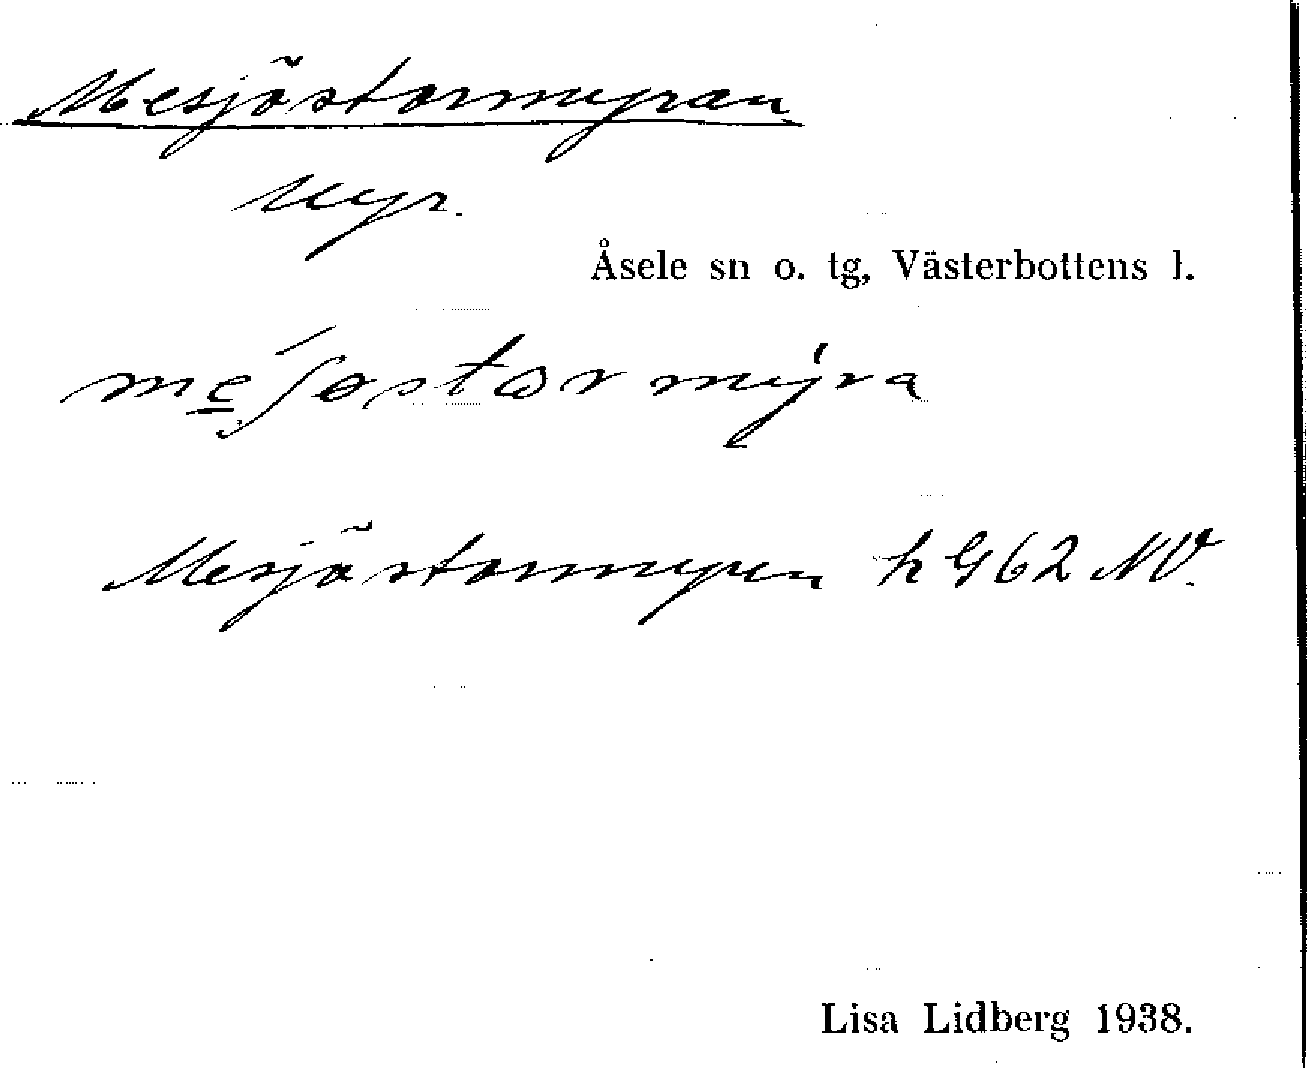 Mesjöstormyran
Myr.
Åsele sn o. tg, Västerbottens l.
me̲ʃøstormy̍ra
Mesjöstormyren h G 62 NV.
Lisa Lidberg 1938.